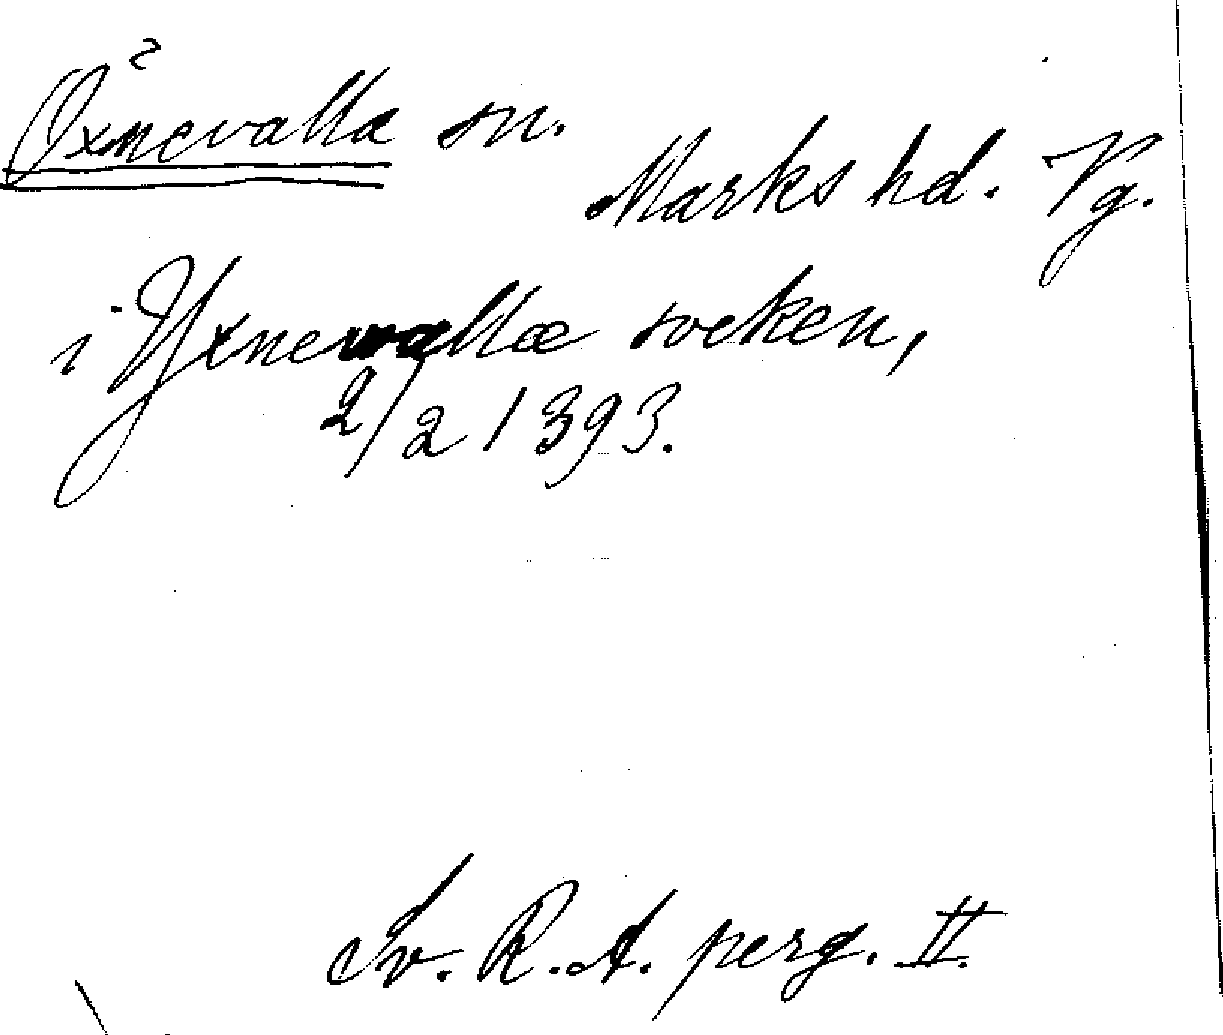 Öxnevalla sn.
Marks hd. Vg.
i Yxnewallæ socken,
2/2 1393.
Sv. R. A. perg. II.